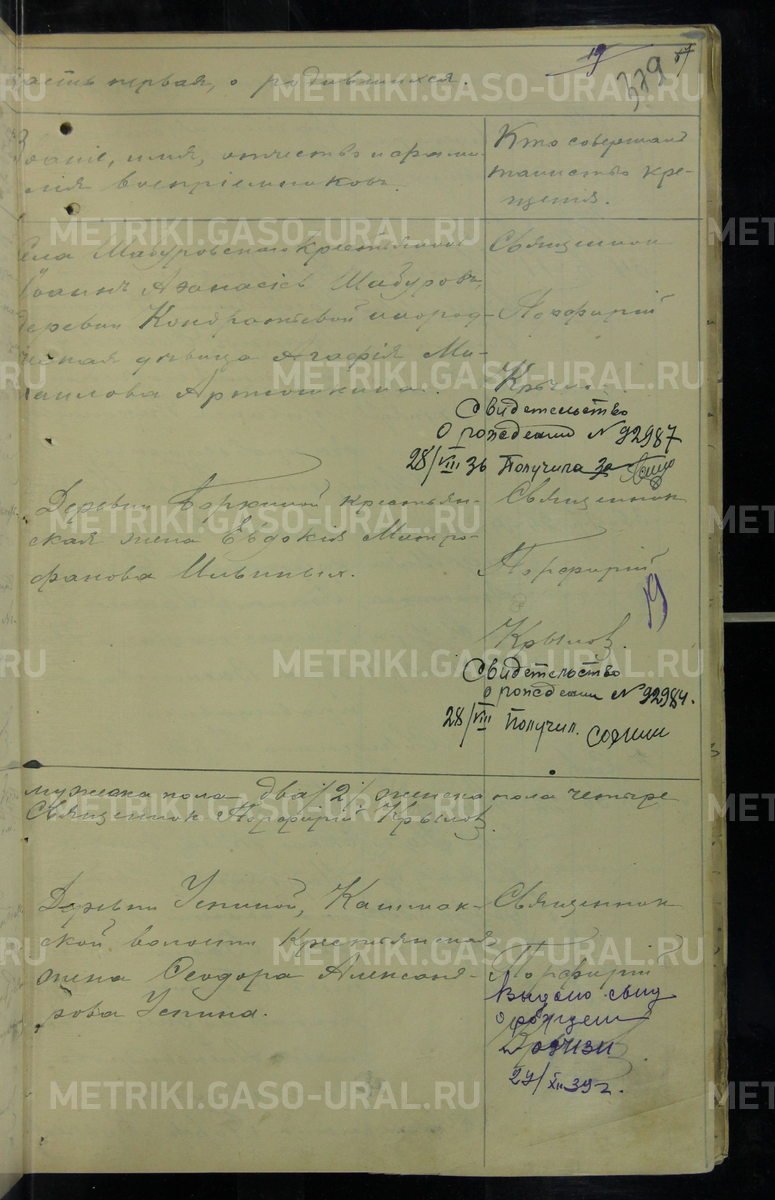 19
379
Часть первая, о родившихся.
Звание, имя, отчество и фами-
лия восприемников.
Кто совершал
таинство кре-
щения.
Села Шабуровскаго крестьянин
Иоаннъ Афанасiев Шабуровъ,
деревни Кондратьевой инород-
ческая девица Агафiя Ми-
хаилова Артюшкина.
Священник
Порфирий
Крылов
Свидетельство
о рождении № 92987
28/VIII 36 Получила за
Деревни крестьян-
ская жена Евдокiя Митро-
фанова Ильиных.
Священник
Порфирий
19
Крылов.
Свидетельство
о рождении № 92984.
28/VIII Получил.
мужеска пола два /2/ женска пола четыре
Священник Порфирий Крылов.
Деревни Устиной, Каслинск-
ской волости Крестьянская
жена Феодора Алексан-
рова Устина.
Священник
Порфирий
Выдано свид
о рожден
24/XII 39 г.
METRIKI.GASO-URAL.RU